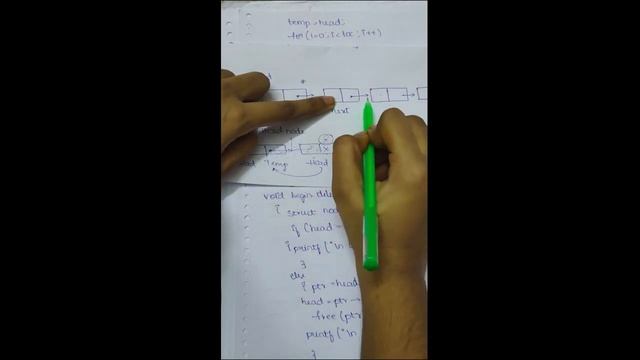 temp=head;
for(i=0;i<loc;i++)
next
node
Temp head
void begin
{ struct
if (head =
{ printf ("\n
}
else
{ ptr =head
head=ptr →
free (ptr
printf ("\n
}